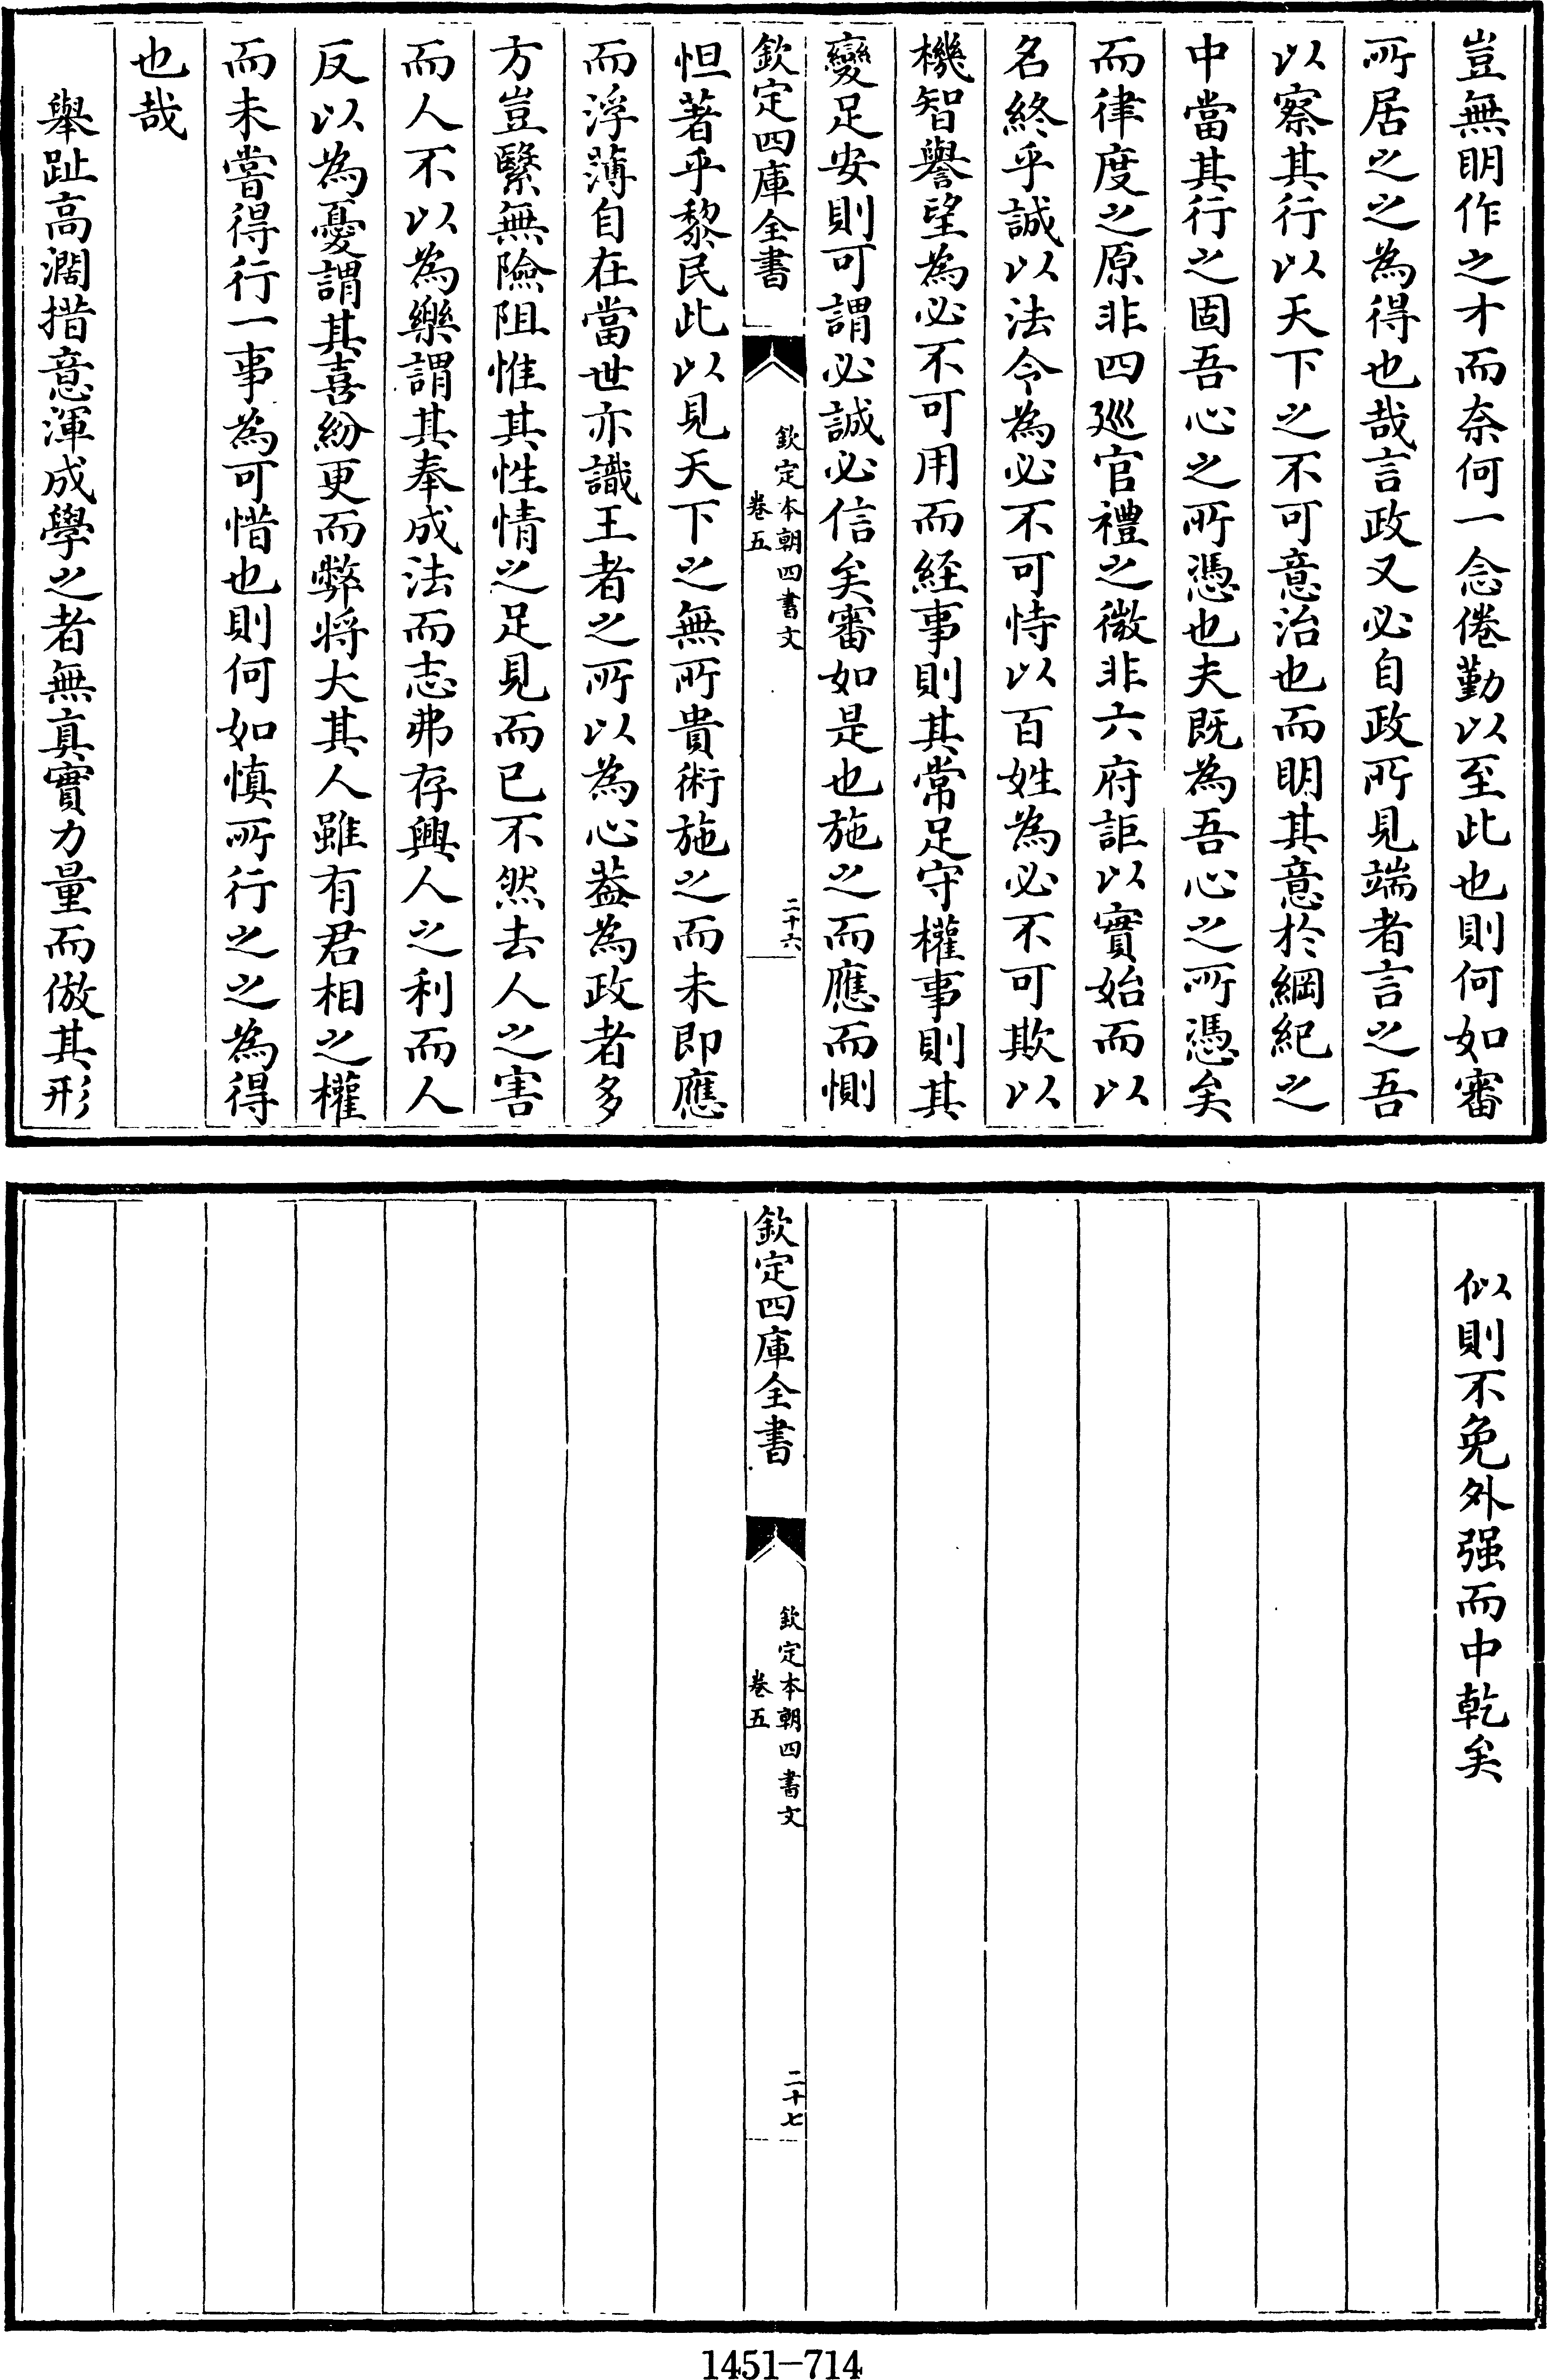 豈無明作之才而奈何一念倦勤以至此也則何如審
所居之之為得也哉言政又必自政所見端者言之吾
以察其行以天下之不可意治也而明其意於綱紀之
中當其行之固吾心之所憑也夫既為吾心之所憑矣
而律度之原非四廵官禮之微非六府詎以實始而以
名終乎誠以法令為必不可恃以百姓為必不可欺以
機智譽望為必不可用而経事則其常足守權事則其
變足安則可謂必誠必信矣審如是也施之而應而惻
欽定四庫全書
欽定本朝四書文
卷五
二十六
怛著乎黎民此以見天下之無所貴術施之而未即應
而浮薄自在當世亦識王者之所以為心葢為政者多
方豈繄無險阻惟其性情之足見而已不然去人之害
而人不以為樂謂其奉成法而志弗存興人之利而人
反以為憂謂其喜紛更而弊将大其人雖有君相之權
而未嘗得行一事為可惜也則何如慎所行之之為得
也哉
舉趾高濶措意渾成學之者無真實力量而倣其形
似則不免外强而中乾矣
欽定四庫全書
欽定本朝四書文
卷五
二十七
1451-714